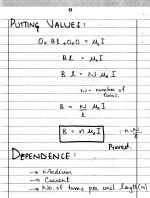 PUTTING VALUES:
0+Bl+0+0 = μ₀I
Bl = μ₀I
Bl = Nμ₀I
N - number of turns.
B = N/l μ₀I
B = nμ₀I ∵ n = N/l
Proved.
DEPENDENCE:
→ Medium
→ Current
→ No. of turns per unit length(n)